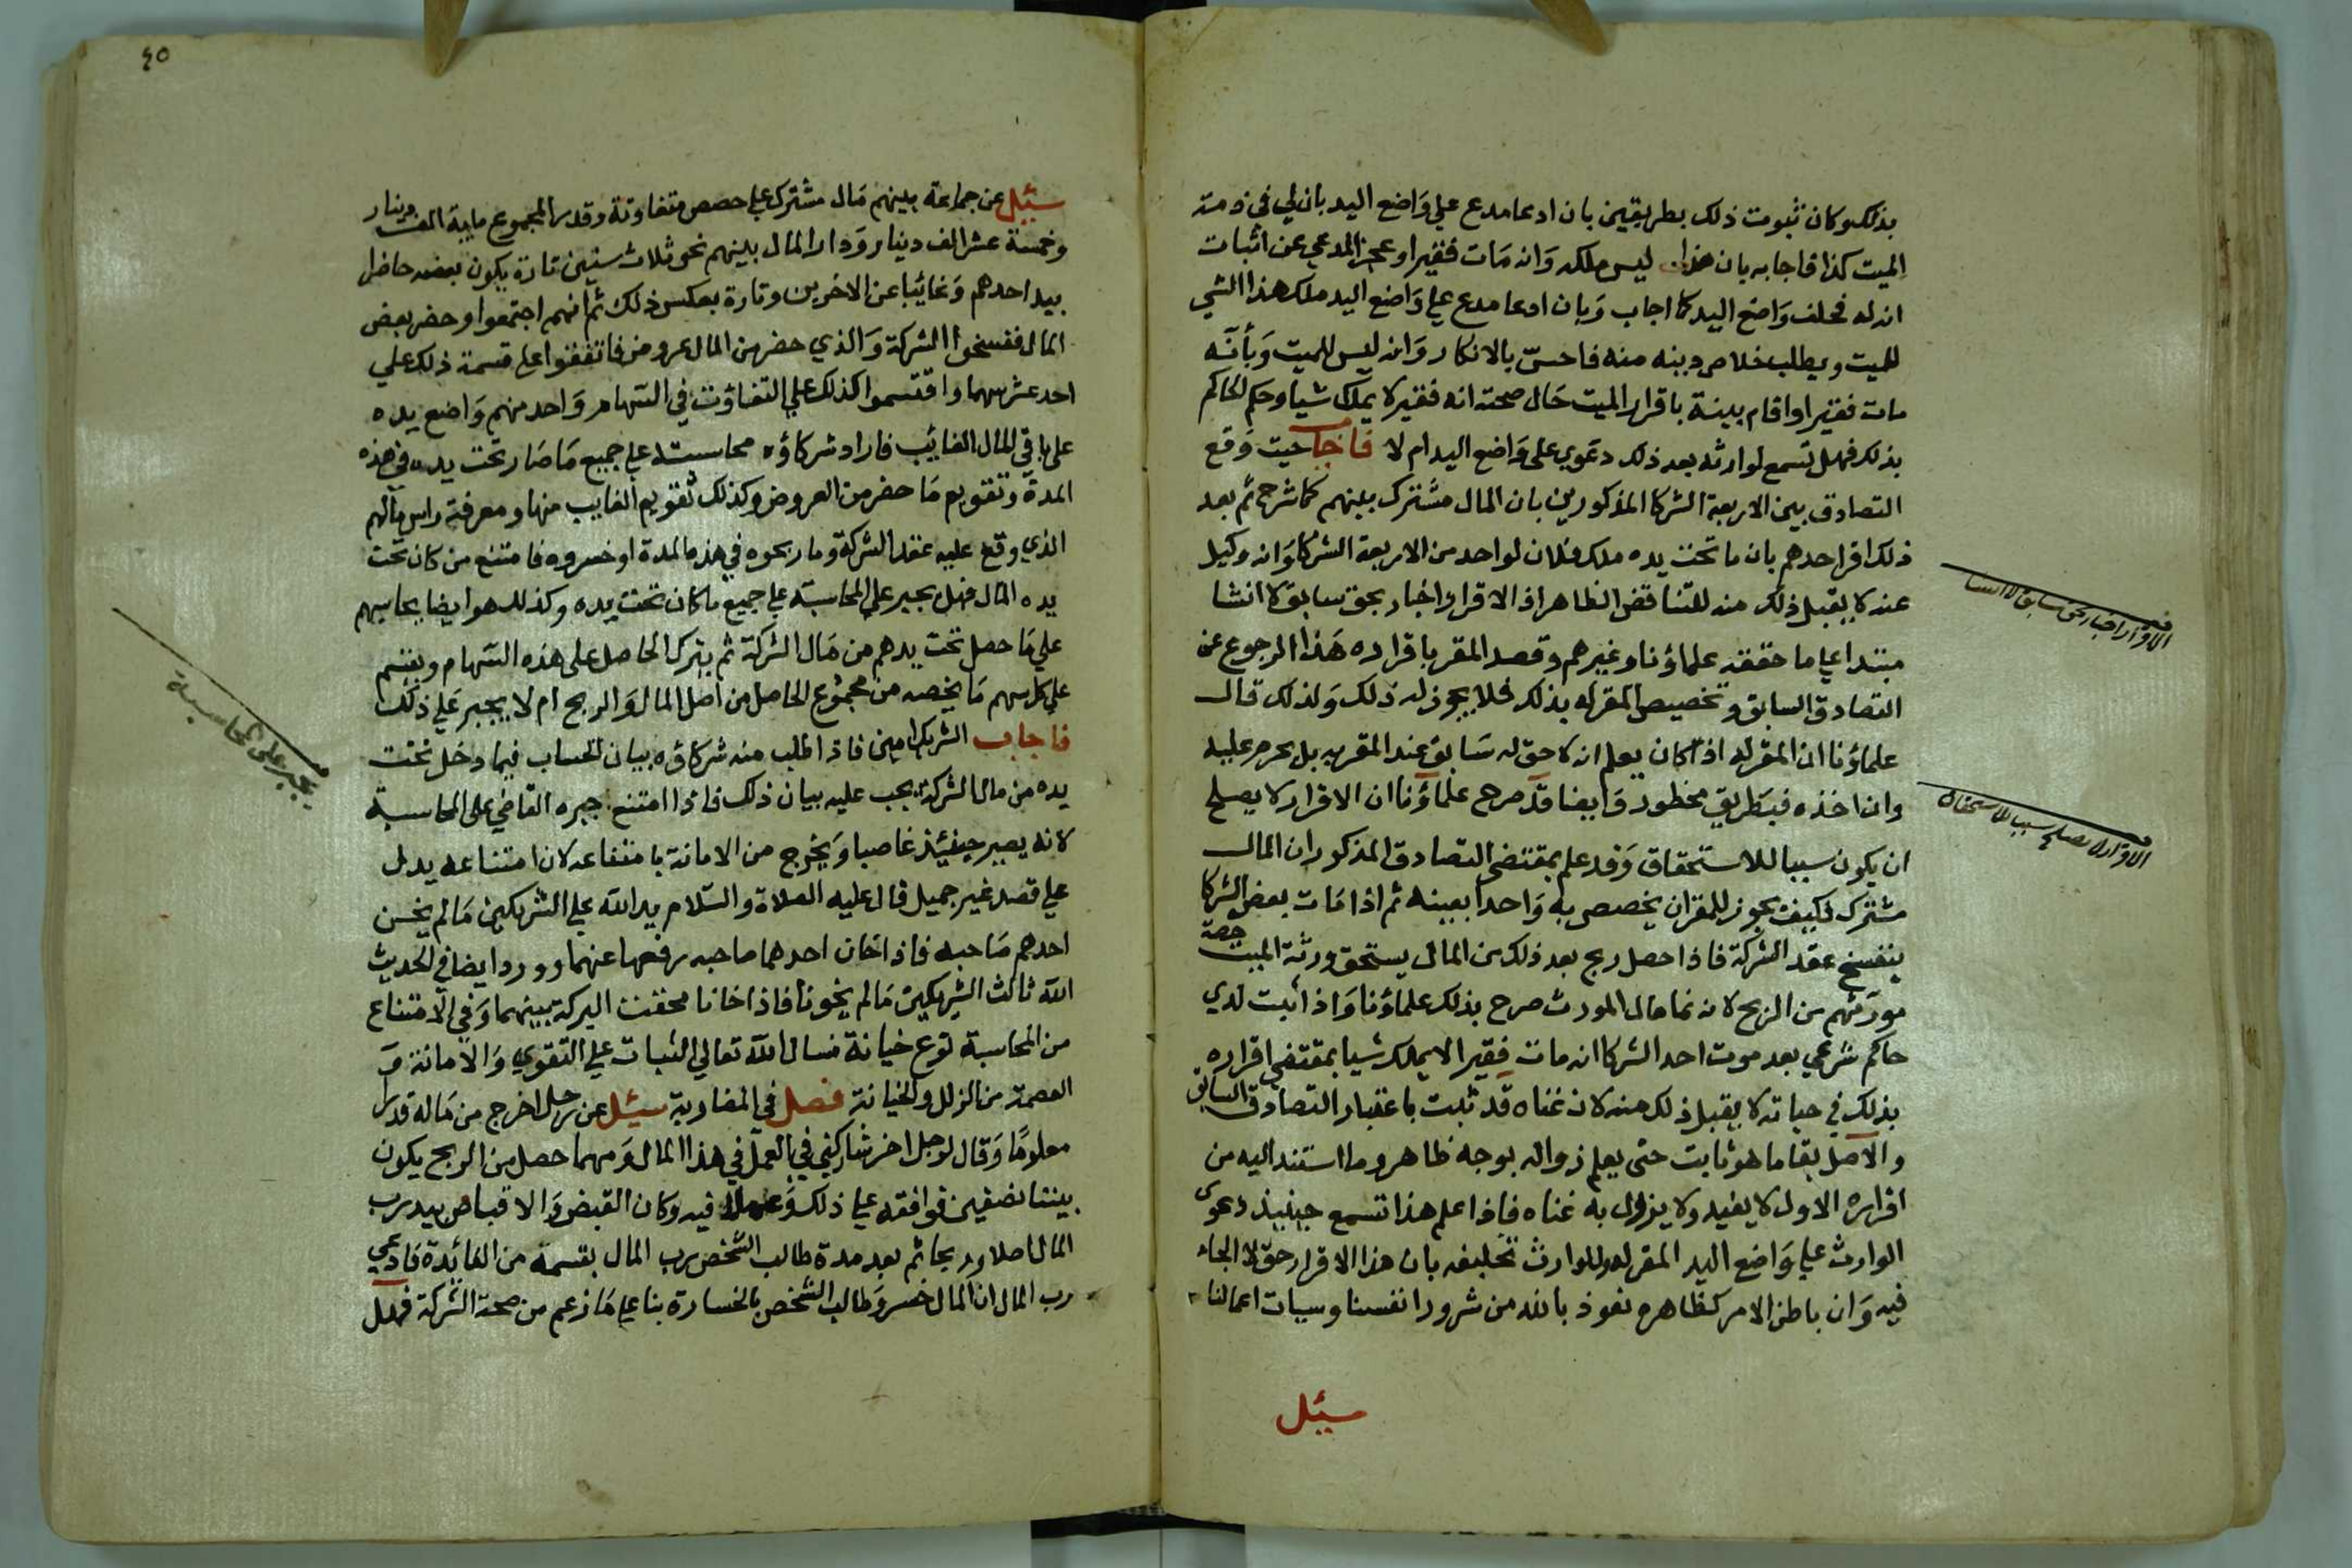 بذلك وكان ثبوت ذلك بطريقين بان ادعا مدع علي واضع اليد بان لي في ذمة
الميت كذا فاجابه بان هذا ليس ملكه وانه مات فقيرا وعجز المدعي عن اثبات
انه له فحلف واضع اليد كما اجاب وبان ادعا مدع علي واضع اليد ملك هذا الشي
للميت ويطلب خلاص دينه منه فاحس بالانكار وانه ليس للميت وبأنه
مات فقيرا واقام بينة باقرار الميت حال صحته انه فقير لا يملك شيا وحكم الحاكم
بذلك فهل تسمع لوارثه بعد ذلك دعوي على واضع اليد ام لا فاجاب حيث وقع
التصادق بين الاربعة الشركا المذكورين بان المال مشترك بينهم كما شرح ثم بعد
ذلك اقر احدهم بان ما تحت يده ملك فلان لواحد من الاربعة الشركا وانه وكيل
عنه لا يقبل ذلك منه للتناقض الظاهر اذ الاقرار اخبار بحق سابق لا انشا
مبتدا علي ما حققه علماؤنا وغيرهم وقصد المقر باقراره هذا الرجوع عن
التصادق السابق وتخصيص المقر له بذلك فلا يجوز له ذلك ولذلك قال
علماؤنا ان المقر له اذا كان يعلم انه لا حق له سابق عند المقر به بل يحرم عليه
وان اخذه فبطريق محظور وايضا قد صرح علماؤنا ان الاقرار لا يصلح
ان يكون سببا للاستحقاق وقد علم بمقتضى التصادق المذكور ان المال
مشترك فكيف يجوز للمقر ان يخصص به واحدا بعينه ثم اذا مات بعض الشركا
ينفسخ عقد الشركة فاذا حصل ربح بعد ذلك من المال يستحق ورثة الميت حصة
مورثهم من الربح لانه نما مال المورث صرح بذلك علماؤنا واذا اثبت لدي
حاكم شرعي بعد موت احد الشركا انه مات فقيرا لا يملك شيا بمقتضى اقراره
بذلك في حياته لا يقبل ذلك منه لان غناه قد ثبت باعتبار التصادق السابق
والاصل بقا ما هو ثابت حتى يعلم زواله بوجه ظاهر وما استند اليه من
اقراره الاول لا يفيد ولا يزول به غناه فاذا علم هذا تسمع حينيذ دعوى
الوارث علي واضع اليد المقر له وللوارث تحليفه بان هذا الاقرار حق لا الجاء
فيه وان باطن الامر كظاهره نعوذ بالله من شرور انفسنا وسيات اعمالنا
سئل
الاقرار اخبار بحق سابق لا انشا
الاقرار لا يصلح سببا للاستحقاق
٤٥
سئل عن جماعة بينهم مال مشترك علي حصص متفاوتة وقدر المجموع ماية الف دينار
وخمسة عشر الف دينار ودار المال بينهم نحو ثلاث سنين تارة يكون بعضه حاضرا
بيد احدهم وغائبا عن الاخرين وتارة بعكس ذلك ثم انهم اجتمعوا وحضر بعض
المال ففسخوا الشركة والذي حضر من المال عروض فاتفقوا علي قسمة ذلك علي
احد عشر سهما واقتسموا كذلك علي التفاوت في السهام وواحد منهم واضع يده
على باقي المال الغائب فاراد شركاؤه محاسبته علي جميع ما صار تحت يده في هذه
المدة وتقويم ما حضر من العروض وكذلك تقويم الغايب منها ومعرفة راس مالهم
الذي وقع عليه عقد الشركة وما ربحوه في هذه المدة او خسروه فامتنع من كان تحت
يده المال فهل يجبر علي المحاسبة علي جميع ما كان تحت يده وكذلك هو ايضا يحاسبهم
علي ما حصل تحت يدهم من مال الشركة ثم يترك الحاصل على هذه السهام ويقسم
علي كل سهم ما يخصه من مجموع الحاصل من اصل المال والربح ام لا يجبر علي ذلك
فاجاب الشريك امين فاذا طلب منه شركاؤه بيان الحساب فيما دخل تحت
يده من مال الشركة يجب عليه بيان ذلك فاذا امتنع جبره القاضي على المحاسبة
لانه يصير حينئذ غاصبا ويخرج من الامانة بامتناعه لان امتناعه يدل
علي قصد غير جميل قال عليه الصلاة والسلام يد الله علي الشريكين ما لم يخن
احدهم صاحبه فاذا خان احدهما صاحبه رفعها عنهما وورد ايضا في الحديث
الله ثالث الشريكين ما لم يخونا فاذا خانا محقت البركة بينهما وفي الامتناع
من المحاسبة نوع خيانة نسال الله تعالي الثبات علي التقوي والامانة و
العصمة من الزلل والخيانة فصل في المضاربة سئل عن رجل اخرج من ماله قدرا
معلوما وقال لرجل اخر شاركني في العمل في هذا المال ومهما حصل من الربح يكون
بيننا نصفين فوافقه علي ذلك وعملا فيه وكان القبض والاقباض بيد رب
المال اصلا وربحا ثم بعد مدة طالب الشخص رب المال بقسمة من الفائدة فادعي
رب المال ان المال خسر وطالب الشخص بالخسارة بنا علي ما زعم من صحة الشركة فهل
يجبر على المحاسبة